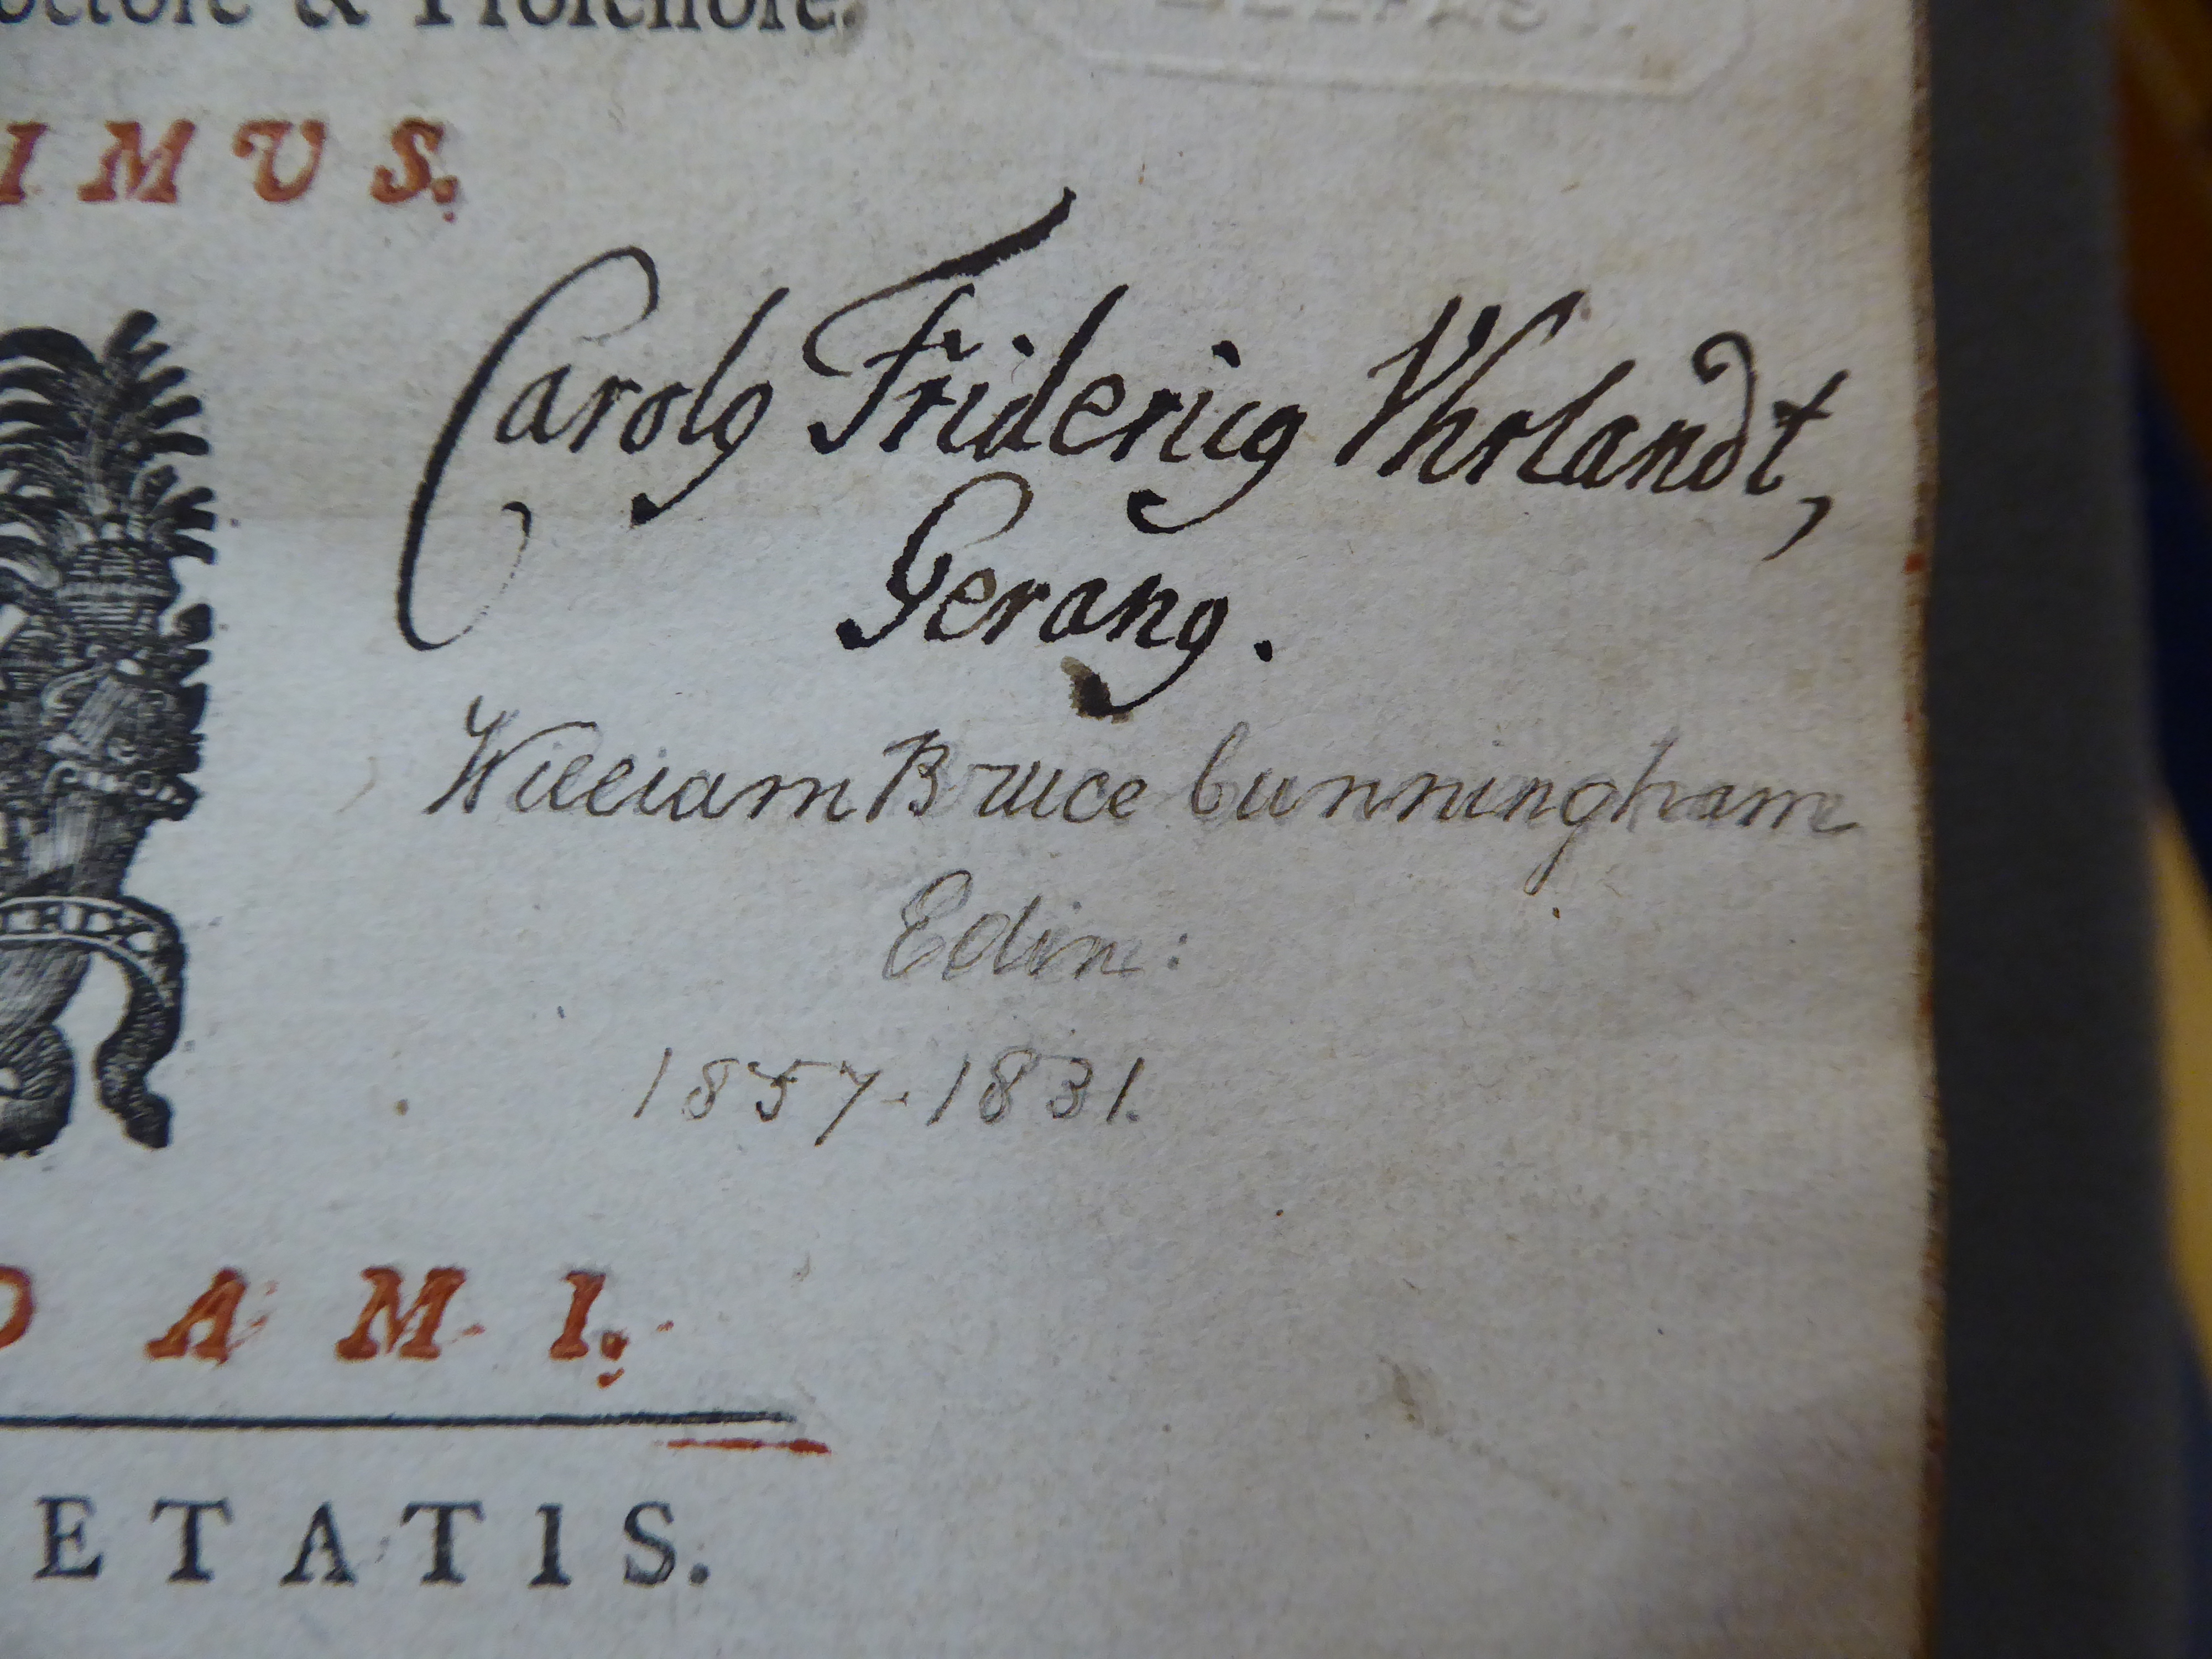 & Professore.
BELFAST.
IMUS.
Carolꝰ Fridericꝰ Vhrlandt,
Geranꝰ.
William Bruce Cunningham
Edin:
1857.1831.
DAMI,
ETATIS.